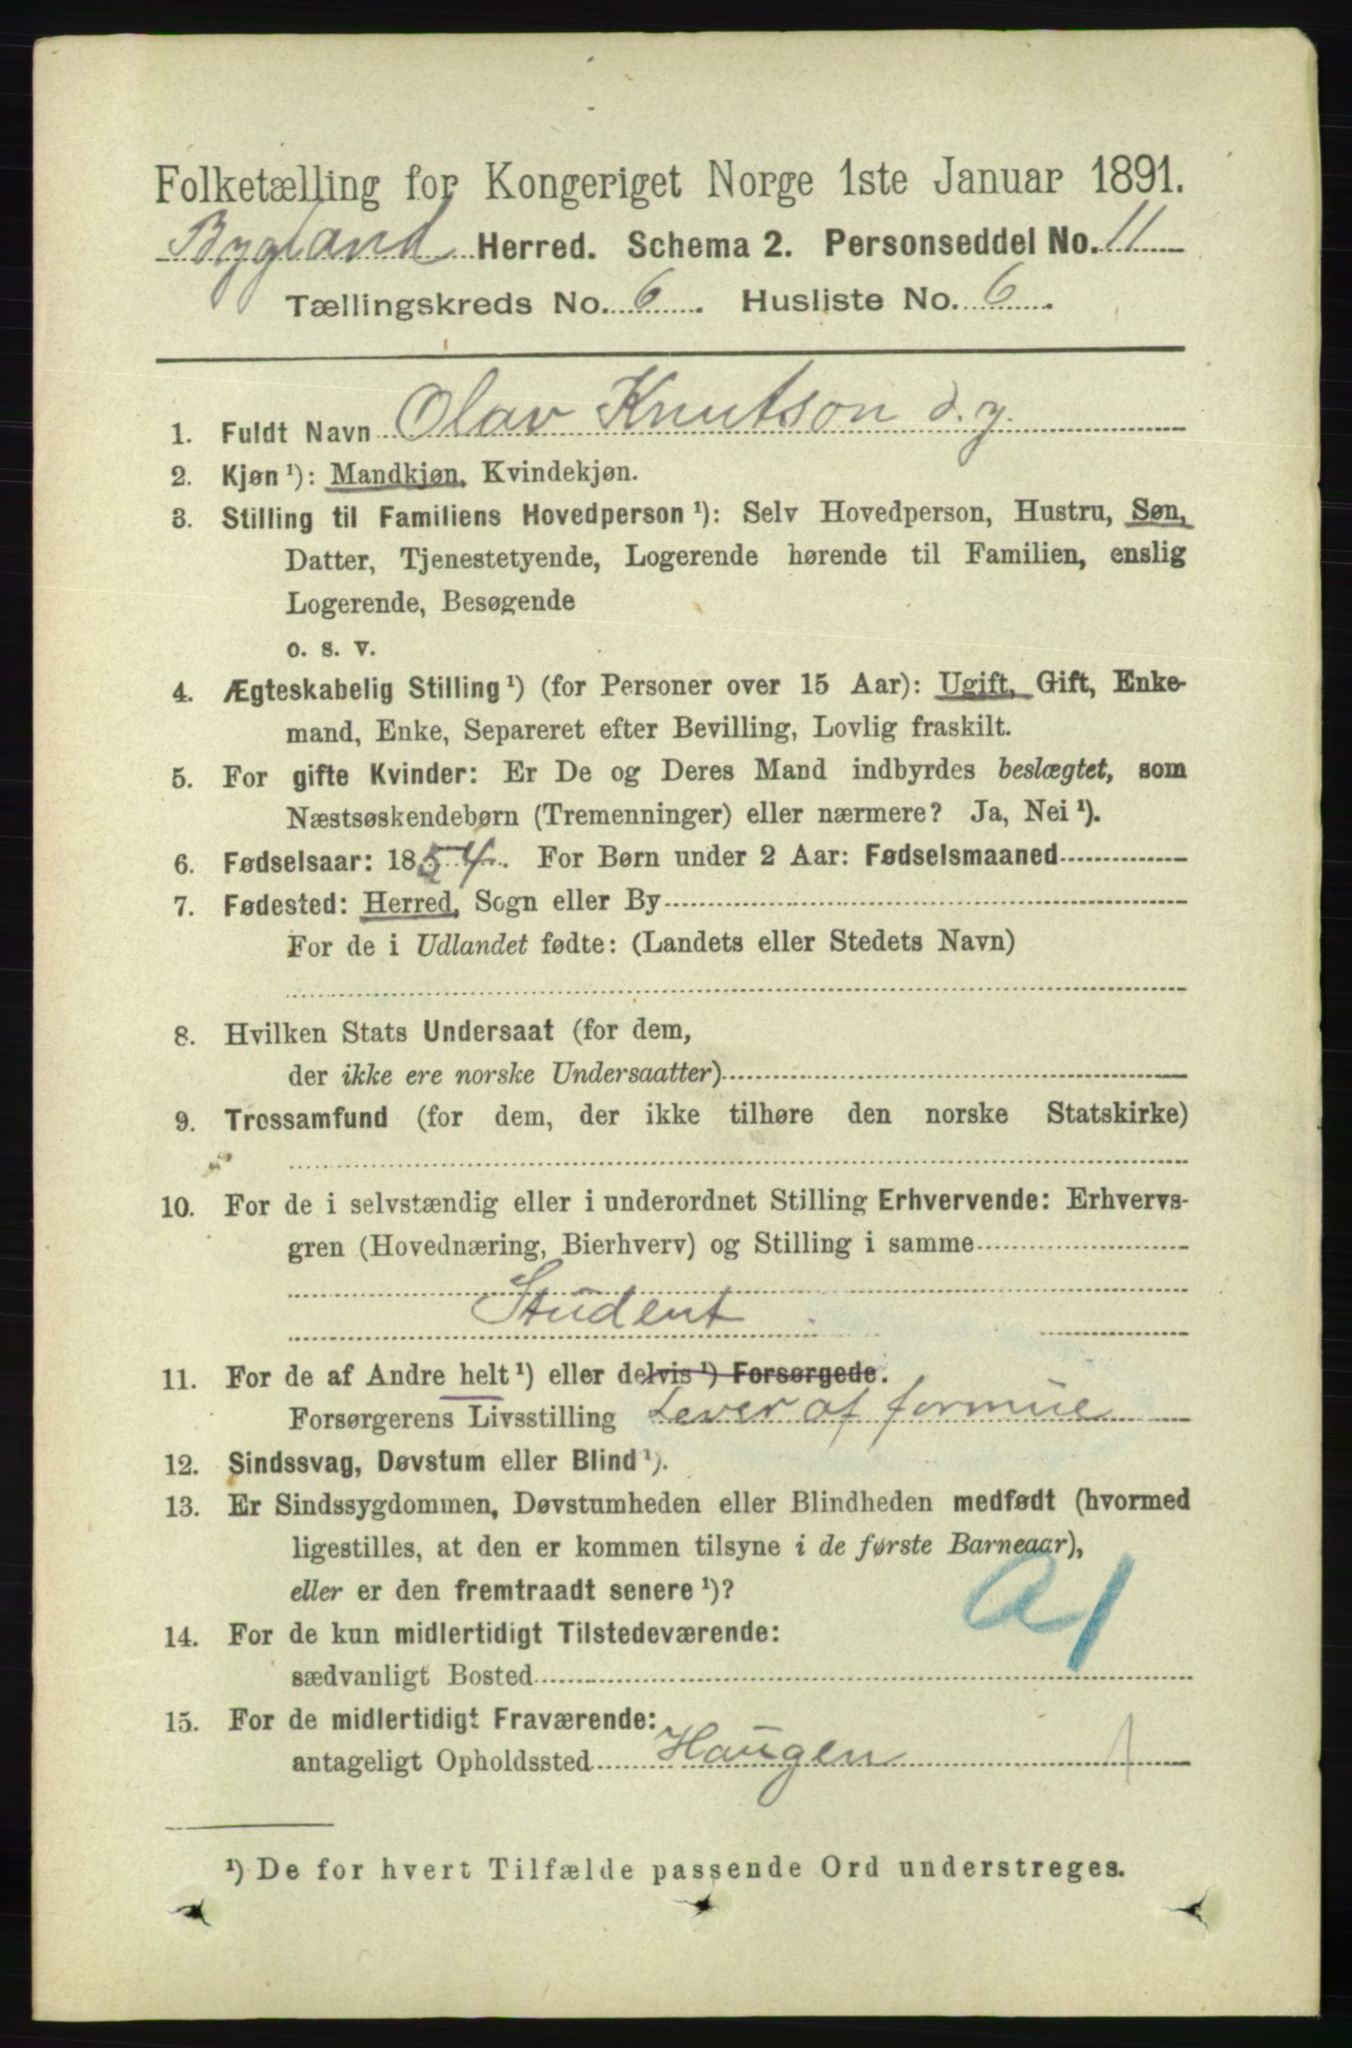 Folketælling for Kongeriget Norge 1ste Januar 1891.
Bygland Herred. Schema 2. Personseddel No. 11
Tællingskreds No. 6. Husliste No. 6.
1. Fuldt Navn Olav Knutson d. y.
2. Kjøn ¹): Mandkjøn, Kvindekjøn.
3. Stilling til Familiens Hovedperson ¹): Selv Hovedperson, Hustru, Søn,
Datter, Tjenestetyende, Logerende hørende til Familien, enslig
Logerende, Besøgende
o. s. v.
4. Ægteskabelig Stilling ¹) (for Personer over 15 Aar): Ugift, Gift, Enke-
mand, Enke, Separeret efter Bevilling, Lovlig fraskilt.
5. For gifte Kvinder: Er De og Deres Mand indbyrdes beslægtet, som
Næstsøskendebørn (Tremenninger) eller nærmere? Ja, Nei ¹).
6. Fødselsaar: 1854. For Børn under 2 Aar: Fødselsmaaned
7. Fødested: Herred, Sogn eller By
For de i Udlandet fødte: (Landets eller Stedets Navn)
8. Hvilken Stats Undersaat (for dem,
der ikke ere norske Undersaatter)
9. Trossamfund (for dem, der ikke tilhøre den norske Statskirke)
10. For de i selvstændig eller i underordnet Stilling Erhvervende: Erhvervs-
gren (Hovednæring, Bierhverv) og Stilling i samme
Student
11. For de af Andre helt ¹) eller delvis ¹) Forsørgede.
Forsørgerens Livsstilling Lever af formue
12. Sindssvag, Døvstum eller Blind ¹).
13. Er Sindssygdommen, Døvstumheden eller Blindheden medfødt (hvormed
ligestilles, at den er kommen tilsyne i de første Barneaar),
eller er den fremtraadt senere ¹)?
a 1
14. For de kun midlertidigt Tilstedeværende:
sædvanligt Bosted
15. For de midlertidigt Fraværende:
antageligt Opholdssted Haugen 1
¹) De for hvert Tilfælde passende Ord understreges.